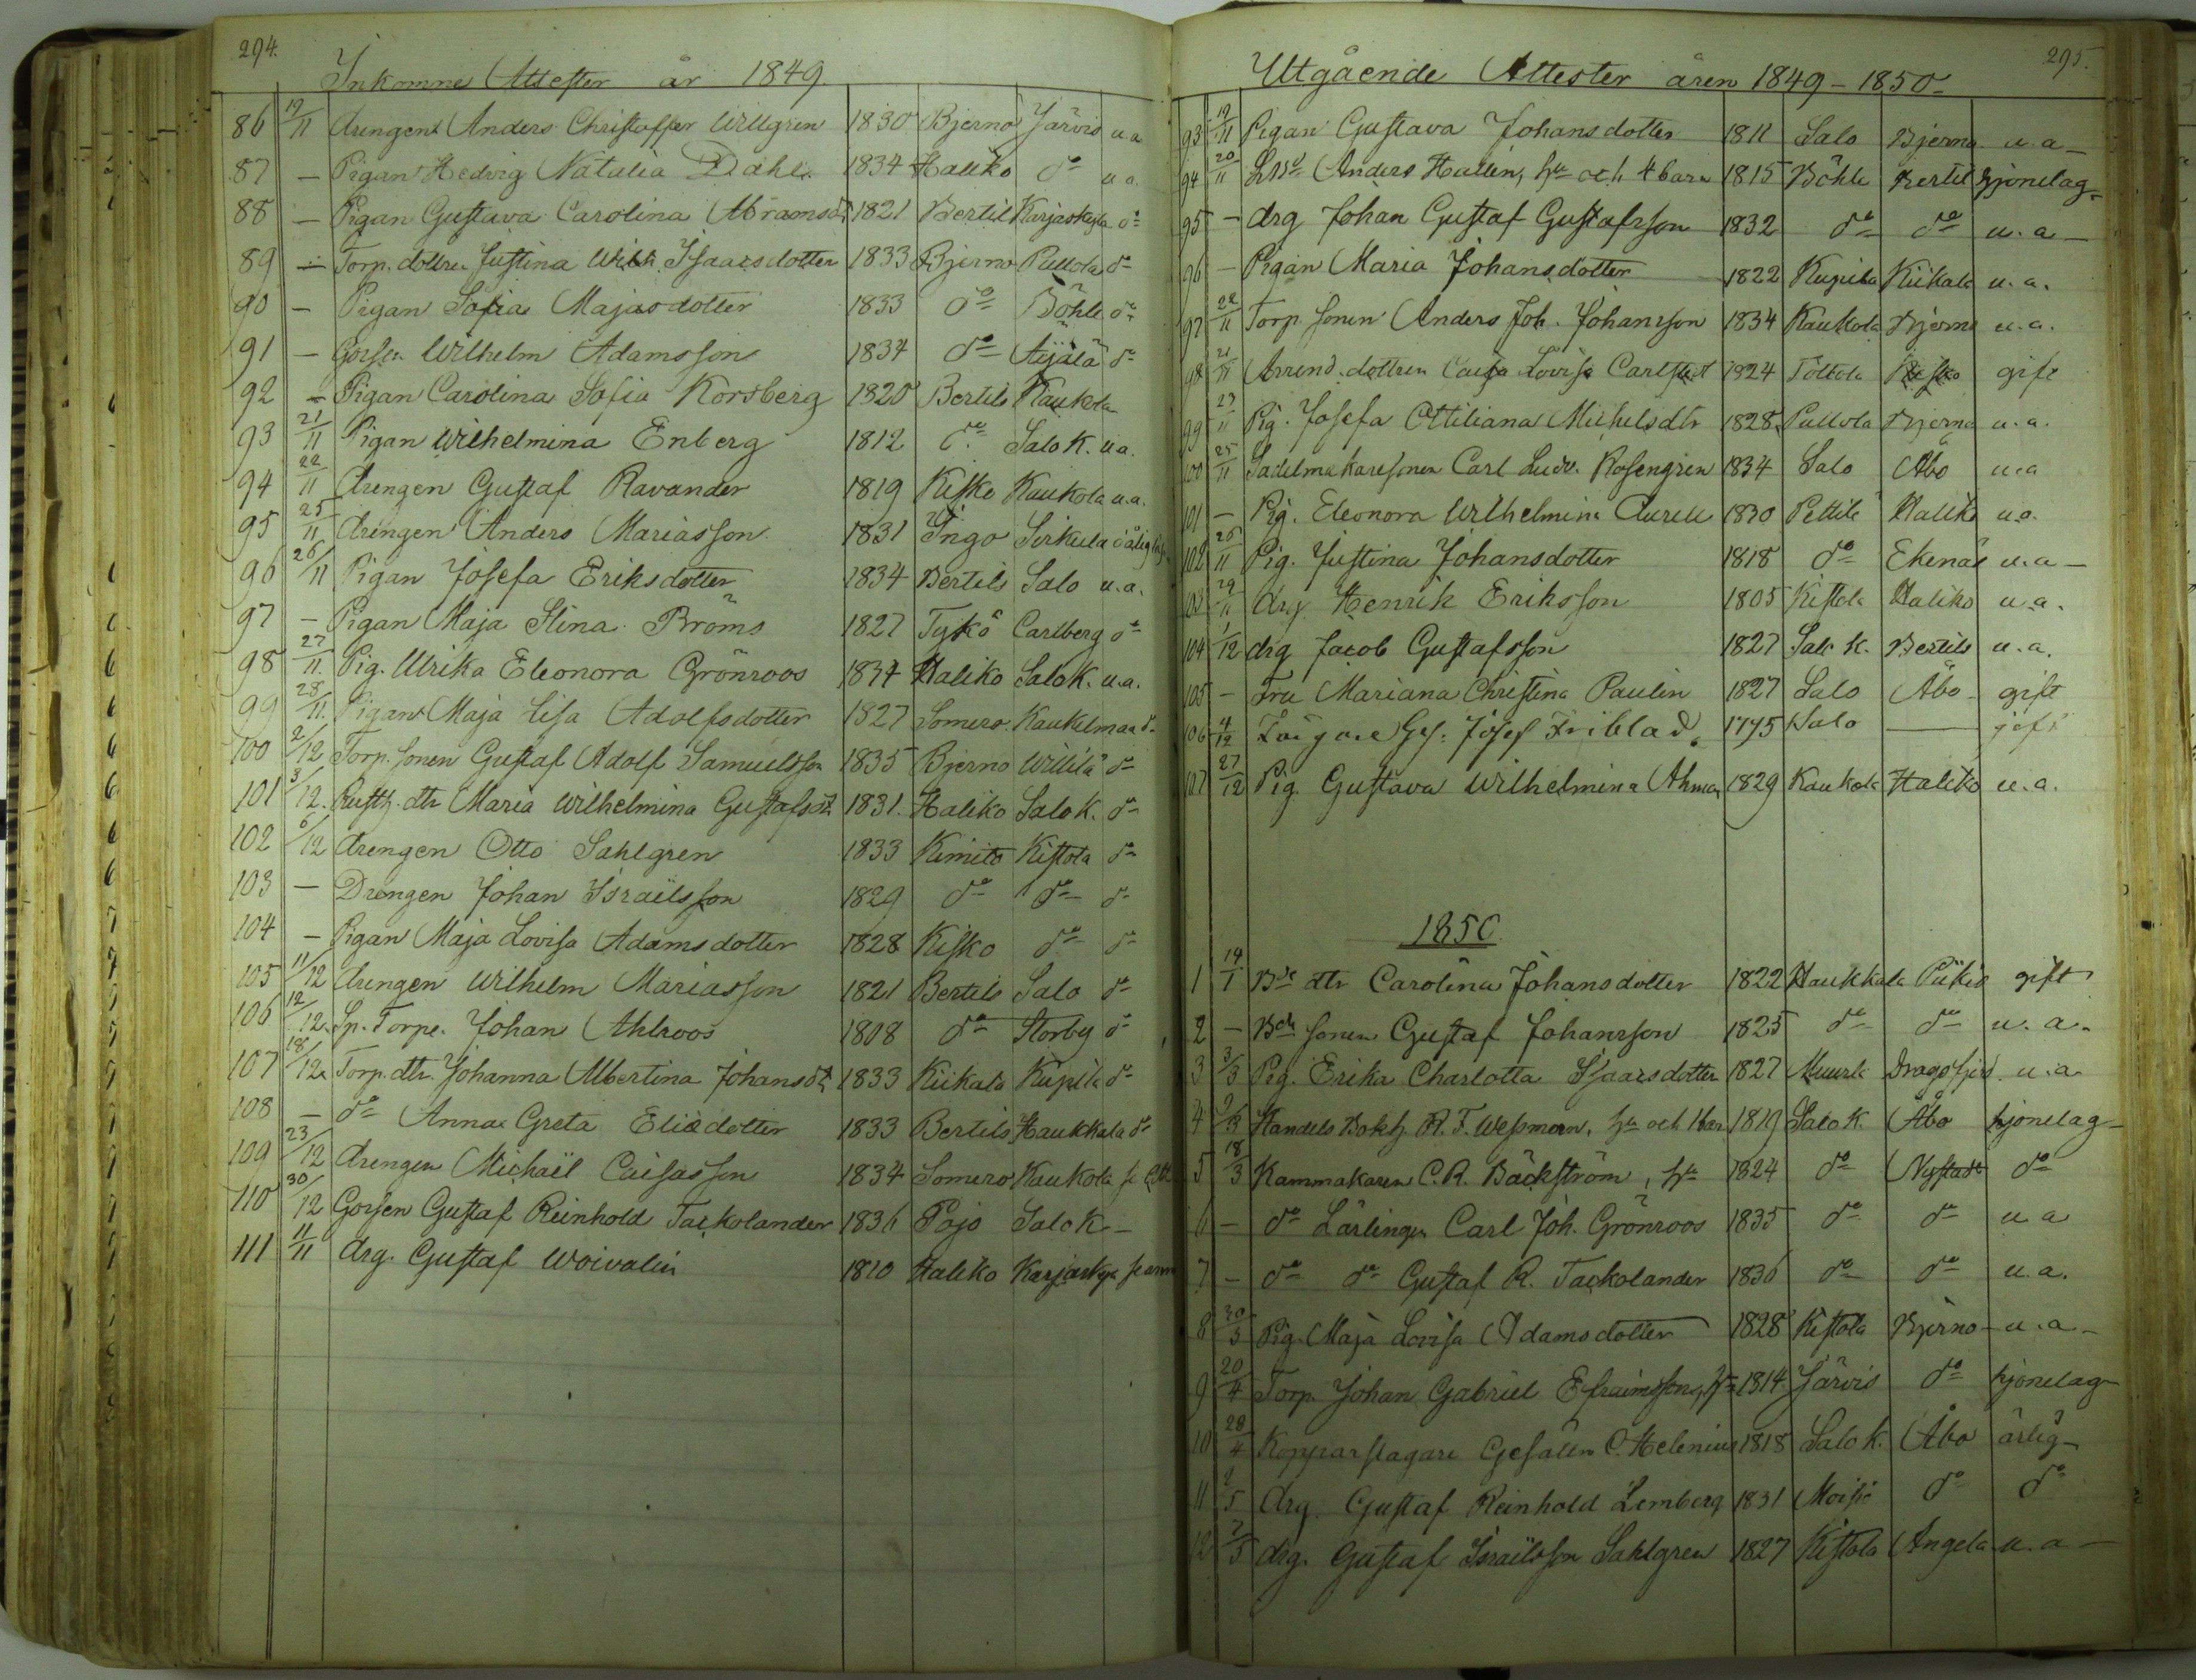 294.
Inkomne Attester år 1849
86 19/11 drengen Anders Christoffer Willgren 1830 Bjerno Järvis u a
87 — Pigan Hedvig Natalia Dahl 1834 Haliko do u a.
88 — Pigan Gustava Carolina Abramsdr 1821 Bertil Karjaskyla do
89 — Torp. dottren Justina Wilh. Isaacsdotter 1833 Bjerno Pullola do
90 — Pigan Sofia Majasdotter 1833 do Böhle do
91 — Gossen Wilhelm Adamsson 1834 do Äijälä do
92 — Pigan Carolina Sofia Korsberg 1820 Bertils Kaukola
93 21/11 Pigan Wilhelmina Enberg 1812 do Salo K. u a.
94 22/11 drengen Gustaf Ravander 1819 Kisko Kaukola u.a.
95 25/11 drengen Anders Mariasson 1831 Ingo Sirkula
96 26/11 Pigan Josefa Eriksdotter 1834 Bertils Salo u.a.
97 — Pigan Maja Stina Broms 1827 Tykö Carlberg do
98 27/11. Pig. Ulrika Eleonora Grönroos 1834 Haliko Salo K. u.a.
99 28/11. Pigan Maja Lisa Adolfsdotter 1827 Somero Kaukelmaa do
100 2/12 Torp. sonen Gustaf Adolf Samuelsson 1835 Bjerno Willilä do
101 3/12. Rusth. dtr Maria Wilhelmina Gustafsdr 1831. Haliko Salo K. do
102 6/12 drengen Otto Sahlgren 1833 Kimito Kistola do
103 — Drengen Johan Israilsson 1829 do do do
104 — Pigan Maja Lovisa Adamsdotter 1828 Kisko do do
105 11/12 drengen Wilhelm Mariasson 1821 Bertils Salo do
106 12/12. Sp. Torpe. Johan Ahlroos 1808 do Storby do
107 18/12 Torp. dtr. Johanna Albertina Johansdr 1833 Kiikala Kupila do
108 — do Anna Greta Eliedotter 1833 Bertils Haukkala do
109 23/12 drengen Michaël Caisasson 1834 Somero Kaukola
110 30/12 Gossen Gustaf Reinhold Tackolander 1836 Pojo Salo K —
111 11/11 drg. Gustaf Woivalin 1810 Haliko Karjaskyla
295.
Utgående Attester åren 1849-1850
93 19/11 Pigan Gustava Johansdotter 1811 Salo Bjerno u. a —
94 20/11 Anders Hallen, hu och 4 barn 1815 Böhle Bertil hjonelag
95 — drg Johan Gustaf Gustafsson 1832 do do u. a —
96 — Pigan Maria Johansdotter 1822 Kupila Kiikala u. a.
97 22/11 Torp. sonen Anders Joh. Johansson 1834 Kaukola Bjerno u.a.
98 21/11 Arrend. dottren Caisa Lovisa Carlstedt 1824 Tottola Kisko gift
99 23/11 Pig. Josefa Ottiliana Michelsdtr 1828 Pullola Bjerno u.a.
100 25/11 Sadelmakaresonen Carl Ludv. Rosengren 1834 Salo Åbo u.a
101 — Pig. Eleonora Wilhelmina Aurell 1830 Pettilä Haliko u.a.
102 25/11 Pig. Justina Johansdotter 1818 do Ekenäs u.a —
103 29/11 drg Henrik Eriksson 1805 Kistola Haliko u.a.
104 1/12 drg Jacob Gustafsson 1827 Salo K. Bertils u.a.
105 — Fru Mariana Christina Paulin 1827 Salo Åbo gift
106 4/12 Ges. Josef Friblad 1795 Salo — gift
107 27/12 Pig. Gustava Wilhelmina Ahman 1829 Kaukola Haliko u.a.
1850
1 14/1 Bde dtr Carolina Johansdotter 1822 Haukkala Piikis gift
2 — Bde sonen Gustaf Johansson 1825 do do u. a.
3 3/3 Pig. Erika Charlotta Isaacsdotter 1827 Muurla Dragsfjerd u.a
4 9/3 Handels Bokh. R. F. Wessman, hu och 1 barn 1819 Salo K. Åbo hjonelag
5 18/3 Kammakaren C. R. Bäckström, hu 1824 do Nystad do
6 — do Lärlingen Carl Joh. Grönroos 1835 do do u a
7 — do do Gustaf R. Tackolander 1836 do do u.a.
8 30/3 Pig. Maja Lovisa Adamsdotter 1828 Kistola Bjerno u.a —
9 20/4 Torp. Johan Gabriel Efraimsson, hu 1814 Järvis do hjonelag
10 28/4 Kopparslagare Gesällen C. Helenius 1818 Salo K. Åbo ärlig
11 2/5 drg. Gustaf Reinhold Lemberg 1831 Moisio do do
12 7/5 drg. Gustaf Israilsson Sahlgren 1827 Kistola Angela u.a —